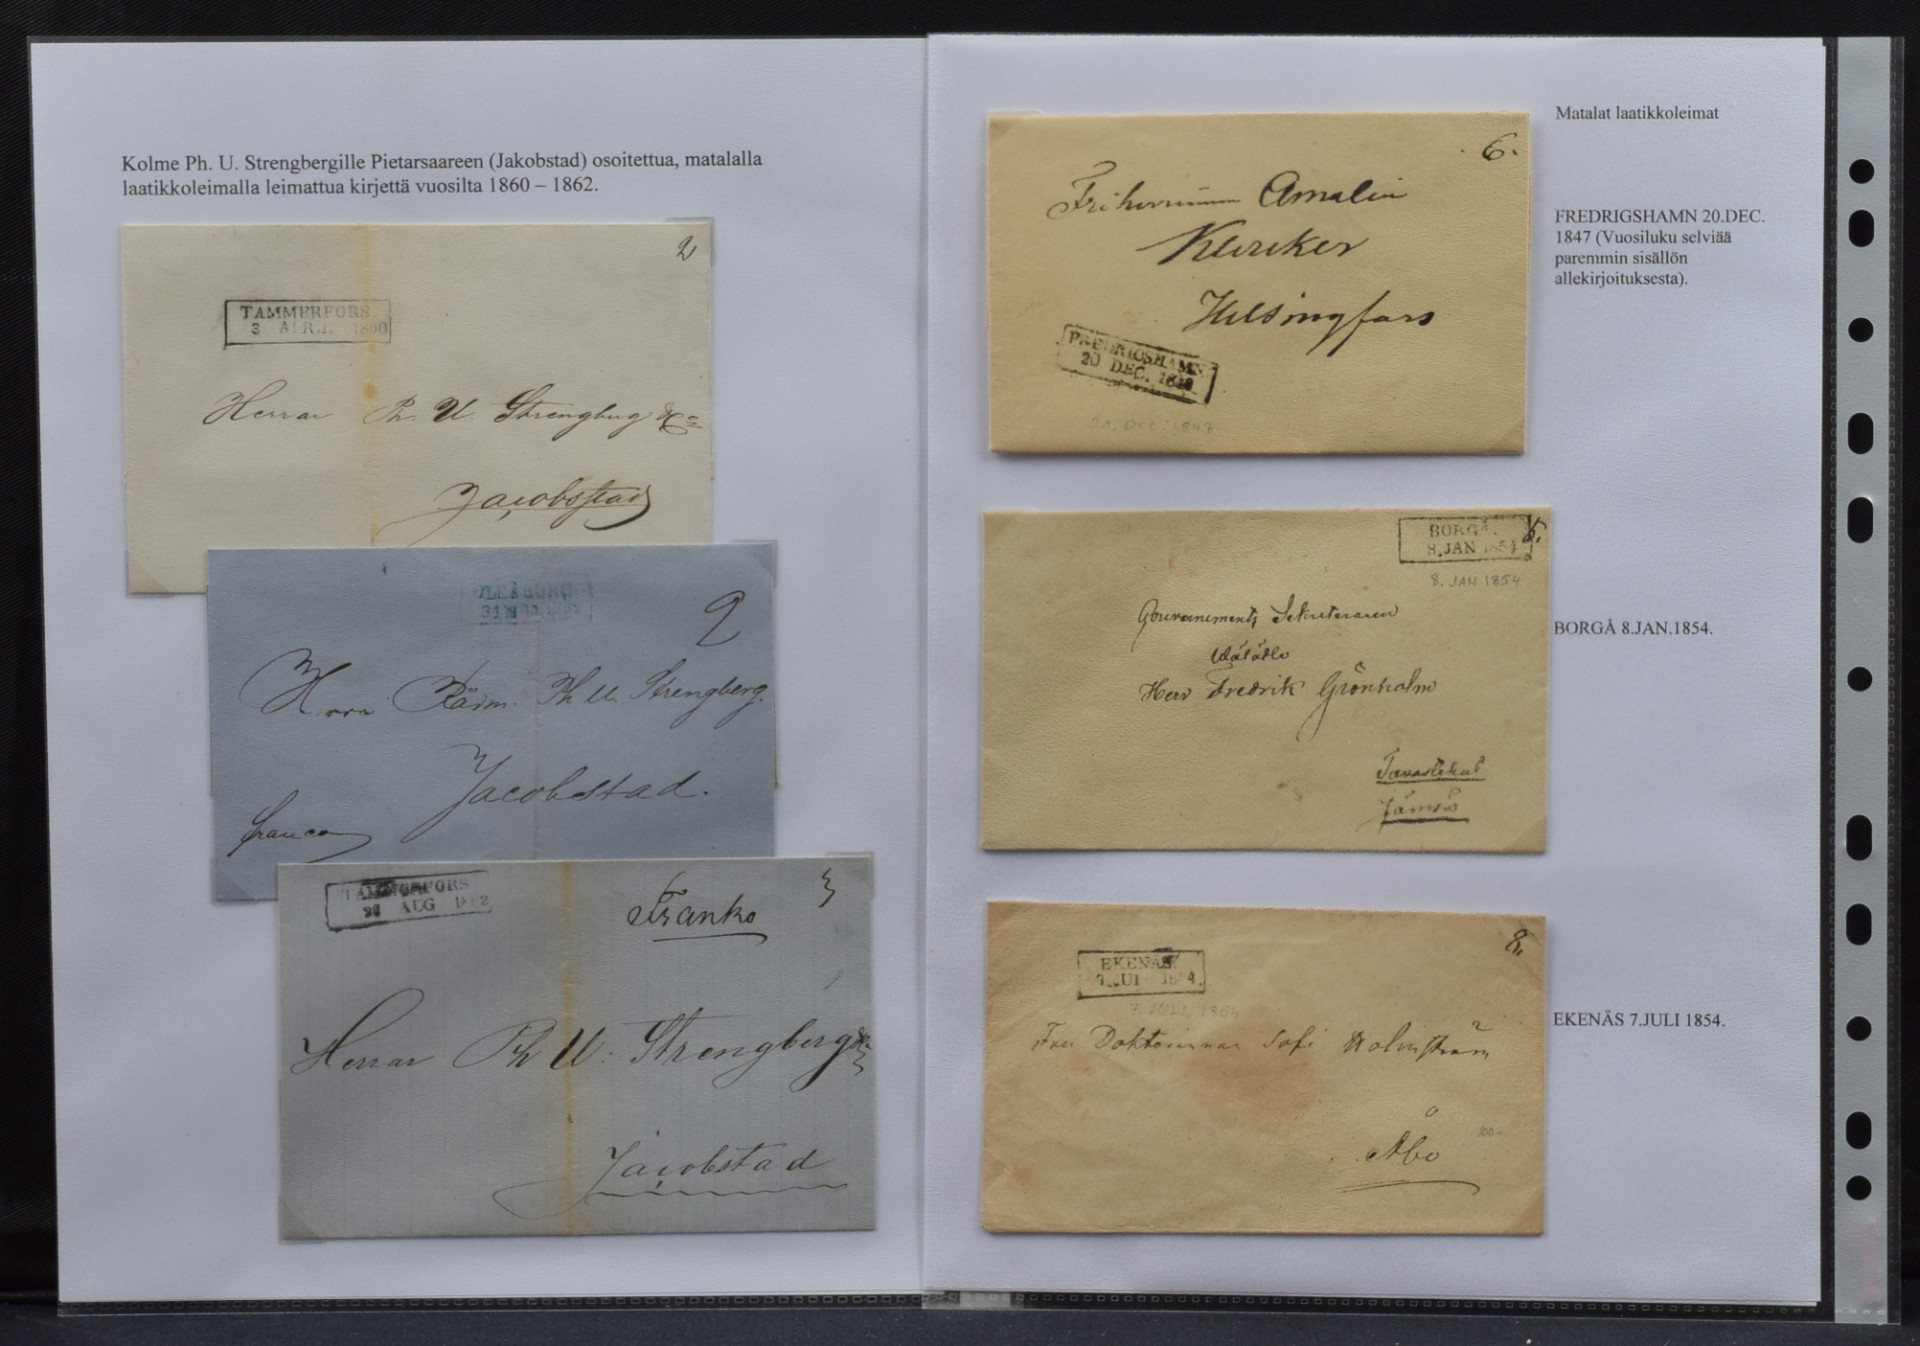 Kolme Ph. U. Strengbergille Pietarsaareen (Jakobstad) osoitettua, matalalla
laatikkoleimalla leimattua kirjettä vuosilta 1860 – 1862.
2
TAMMERFORS
3 APRIL 1860
Herrar Ph. U. Strengberg &C
Jacobstad
ULEÅBORG
2
Herr Ph U. Strengberg.
Jacobstad.
franco
TAMMERFORS
AUG
Franko
Herrar Ph U: Strengberg &
Jacobstad
Matalat laatikkoleimat
6.
Friherrinnan Amalia
Klercker
Helsingfors
FREDRIGSHAMN
20 DEC.
20. DEC. 1847
FREDRIGSHAMN 20.DEC.
1847 (Vuosiluku selviää
paremmin sisällön
allekirjoituksesta).
BORGÅ.
8.JAN 1854
8. JAN 1854
Gouvernements Sekreteraren
Herr Fredrik Grönholm
Jämsä
BORGÅ 8.JAN.1854.
8.
EKENÄS.
7. JULI 1854
Fru Doktorinnan Sofi Holmström
Åbo
100-
EKENÄS 7.JULI 1854.